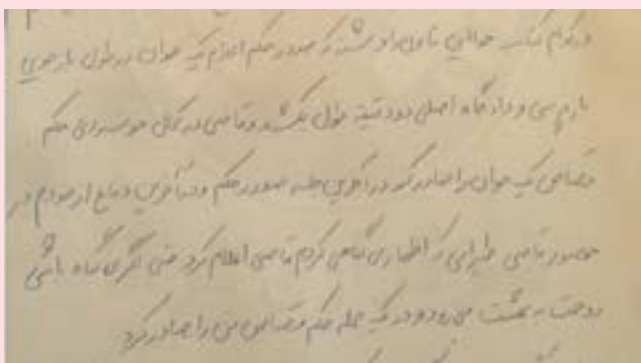 در کدام کتاب حوالی تاول را و صدور حکم اعدام یک جوان در طول بازجویی
بازپرسی و دادگاه اصلی دو دقیقه طول بکشد و قاضی در کمال خونسردی حکم
قصاص یک جوان را صادر کند در آخرین جلسه صدور حکم و در آخرین دفاع از خودم در
حضور قاضی اظهار بی گناهی کردم قاضی اعلام کرد حتی اگر بی گناه باشی
روحت به بهشت می رود و در یک جمله حکم قصاص من را صادر کرد